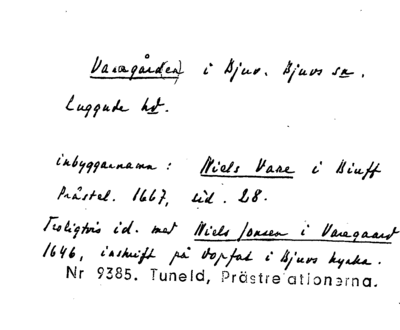 Varagård(en) i Bjuv. Bjuvs sn.
Luggude hd.
inbyggarenamn: Niels Vare i Biuff
Prästrel. 1667, sid. 28.
Troligtvis id. med Niels Jonsen i Varegaard
1646, inskrift på dopfat i Bjuvs kyrka.
Nr 9385. Tuneld, Prästrelationerna.